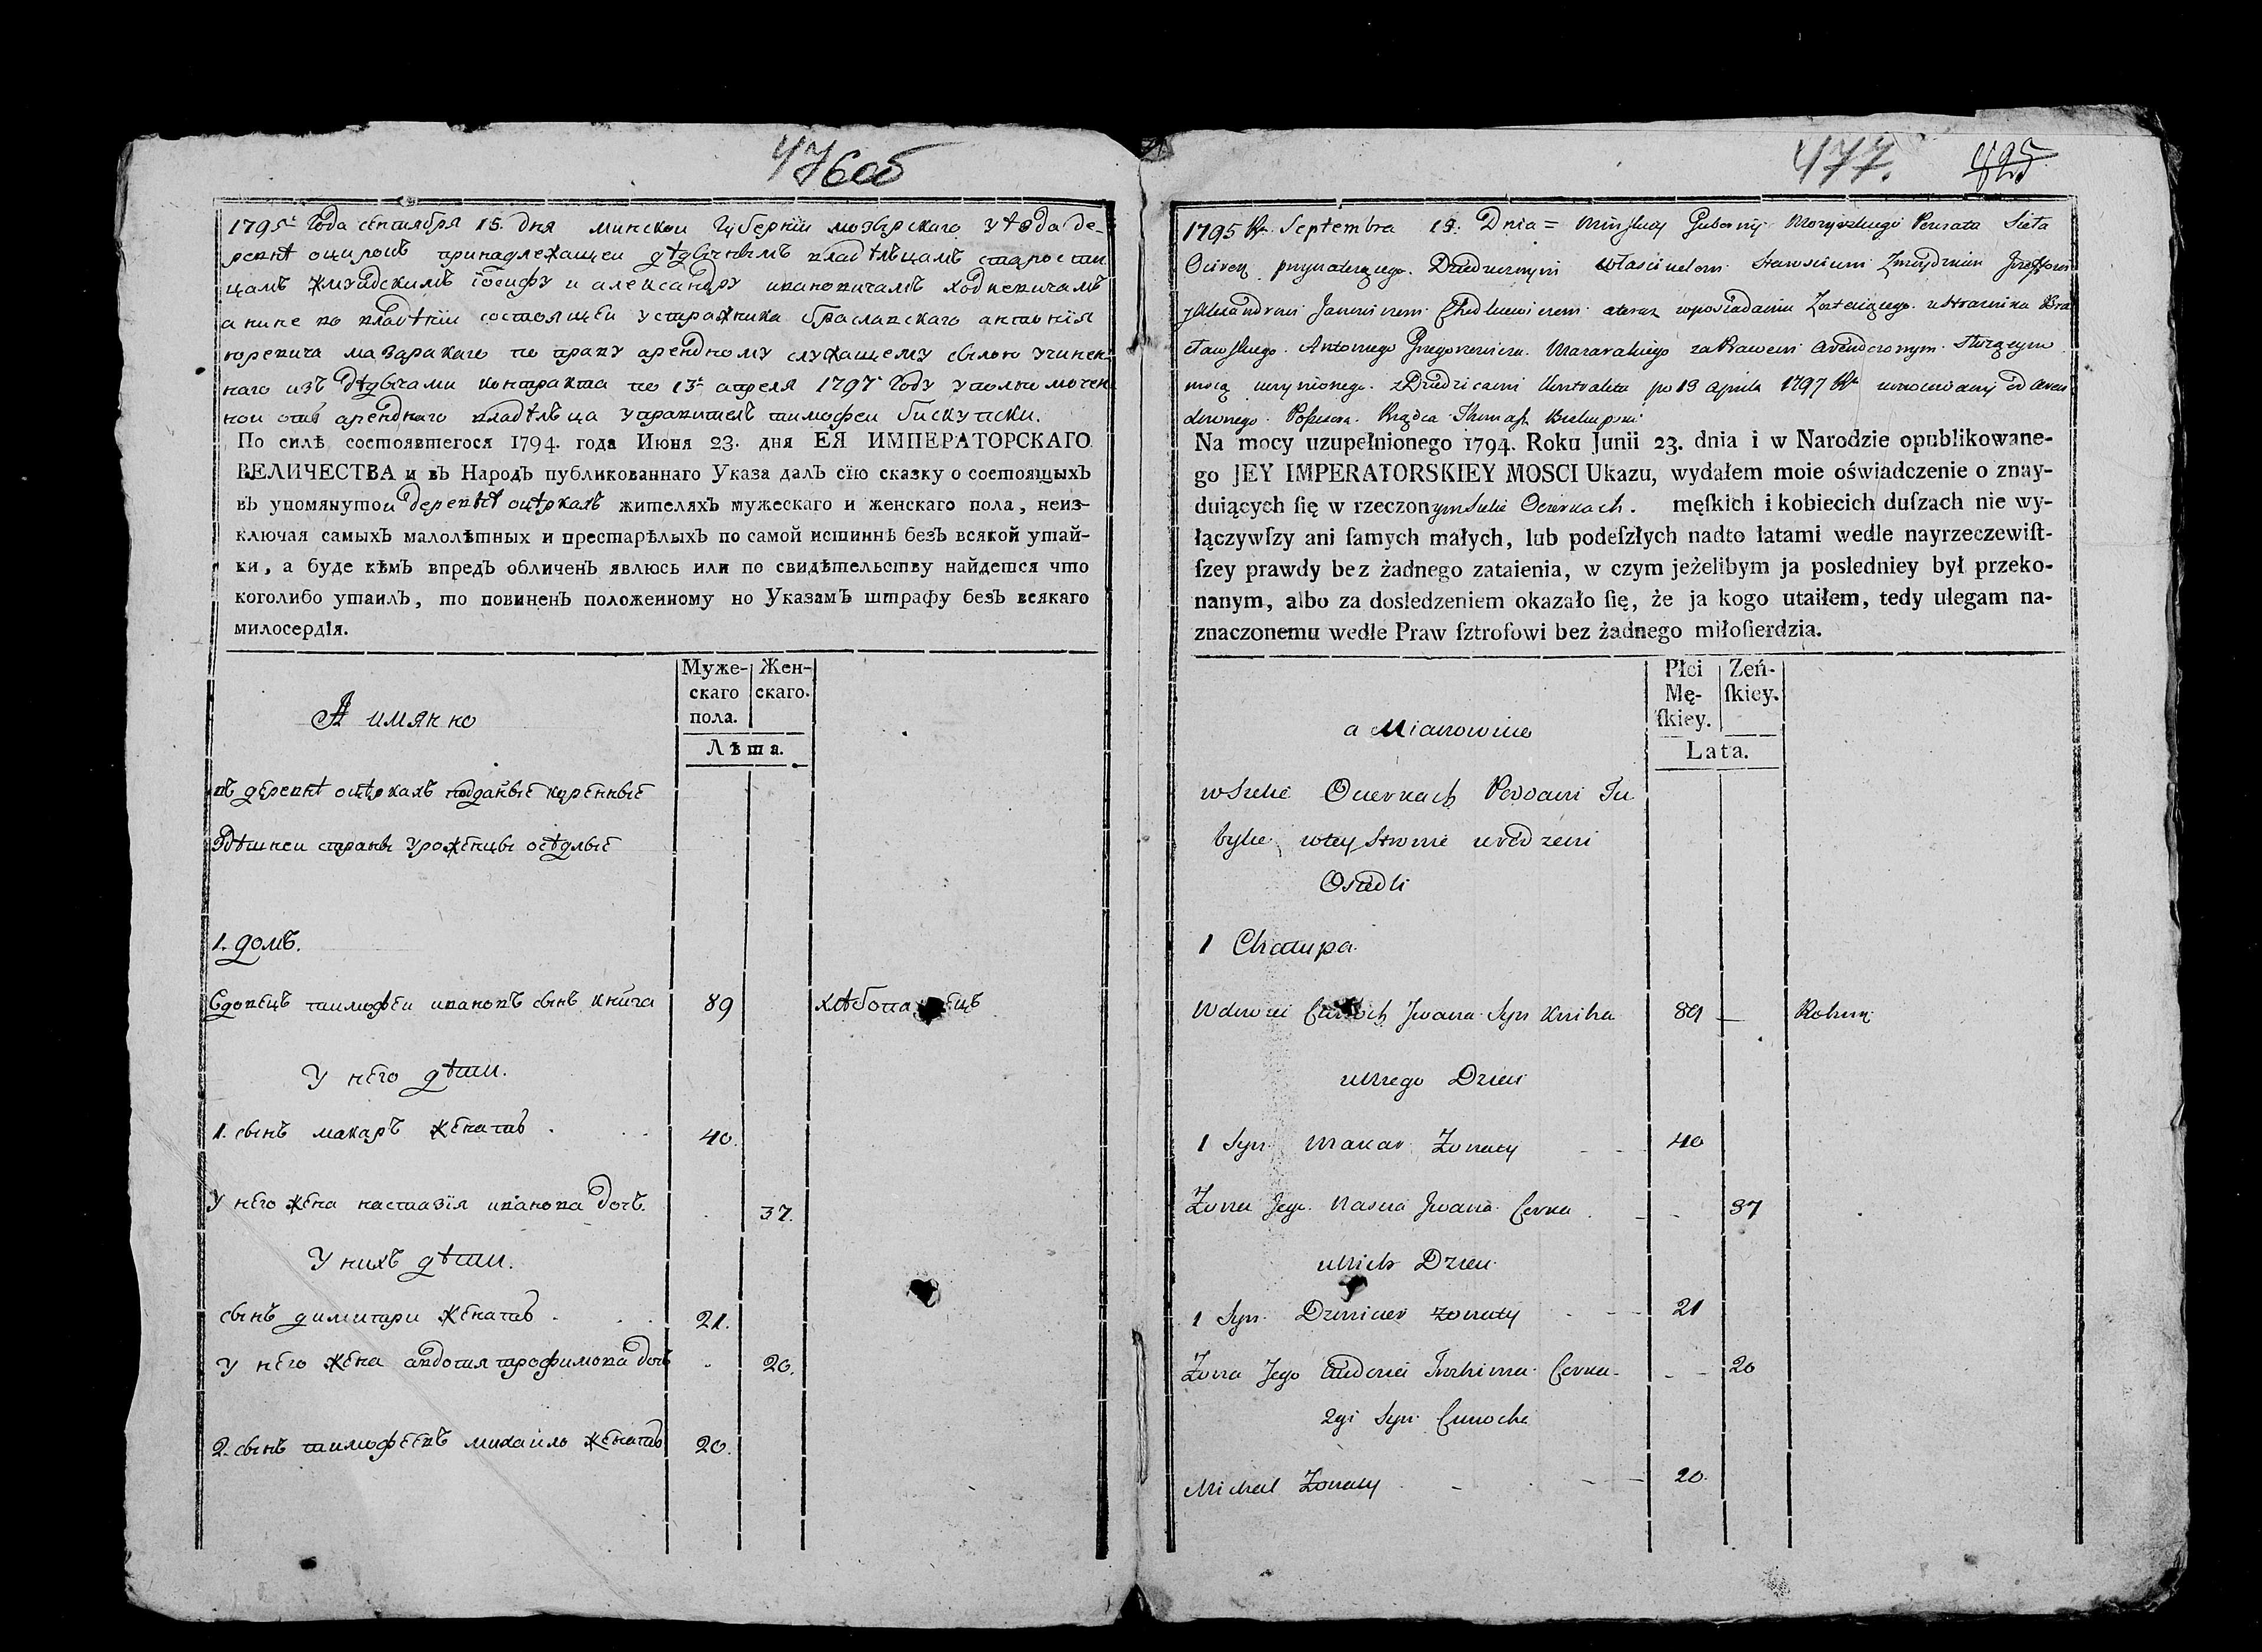 476 об
1795г Года сентября 15. дня минской Губернии мозырскаго уезда де-
ревнѣ принадлежащей дѣдычнымъ владѣльцамъ старостин
цамъ жмуйдскимъ іосифу и александру ивановичамъ ходкевичамъ
а ныне во владѣнии состоящей у стражника браславскаго антонія
мазаракаго по праву арендному служащему силою учинен
наго изъ дѣдычами контракта по 13е апреля 1797 Году уполномочен
ной отъ аренднаго владѣльца управитель тимофей бискупски.
По силѣ состоявшегося 1794. года Июня 23. дня ЕЯ ИМПЕРАТОРСКАГО
ВЕЛИЧЕСТВА и въ НародЪ публикованнаго Указа далЪ сїю сказку о состоящыхЪ
вЪ упомянутой деревнѣ оцѣркахъ жителяхЪ мужескаго и женскаго пола, неиз-
ключая самыхЪ малолѣтных и престарѣлыхЪ по самой истиннѣ безЪ всякой утай-
ки, а буде кѣмЪ впредЪ обличенЪ явлюсь или по свидѣтельству найдется что
коголибо утаилЪ, то повиненЪ положенному по УказамЪ штрафу безЪ всякаго
милосердїя.
А имянно
Муже-
скаго
пола.
Жен-
скаго.
Лѣта.
въ деревнѣ оцѣркахъ подданые коренные
здѣшней страны уроженцы осѣдлые
1. домъ.
вдовецъ тимофей ивановъ сынъ книга 89
у него дѣти.
1. сынъ макаръ женатъ 40.
у него жена настазія иванова дочь. 37.
у нихъ дѣти.
сынъ димитри женатъ 21.
у него жена авдотия трофимова дочь 20.
2. сынъ тимофеевъ михайло женатъ 20.
477. 425
1795 Rr. Septembra 13. Dnia = Minskiey Gubernij Mozyrskiego Powiata Sieła
przynależącego. Dziedzicznym Właścicielom Starościcom Żmuydzkim Jozefowi
y Alexandrowi Janowiczom Chodkiewiczom a teraz w posiadaniu Zostaiącego u Straznika Bra
cławskiego. Antoniego Grzegorzewicza Mazarakiego za Prawem Arendownym Służącym
mocą uczynionego z Dziedzicami Kontraktu po 13 Aprila 1797 Rr umocowany od aren
downego Possesora. Rządca Thomasz Biskupski
Na mocy uzupełnionego 1794. Roku Junii 23. dnia i w Narodzie opublikowane-
go JEY IMPERATORSKIEY MOSCI Ukazu, wydałem moie oświadczenie o znay-
duiących ſię w rzeczonym Siele Ocierkach. męſkich i kobiecich duſzach nie wy-
łączywſzy ani ſamych małych, lub podeſzłych nadto łatami wedle nayrzeczewiſt-
ſzey prawdy bez żadnego zataienia, w czym jeżelibym ja posledniey był przeko-
nanym, albo za dosledzeniem okazało ſię, że ja kogo utaiłem, tedy ulegam na-
znaczonemu wedle Praw ſztrofowi bez żadnego miłoſierdzia.
a Mianowicie
Płci
Mę-
ſkiey.
Zeń-
ſkiey.
Lata.
w Siele Ocierkach Poddani Tu
bylce w tey Stronie urodzeni
Osiedli
1 Chałupa
Wdowiec Iwana Syn Kniha 89 Rolnik
u Niego Dzieci
1 Syn Makar Żonaty 40
Żona Jego Nasta Iwana Corka 37
u Nich Dzieci
1 Syn Dzmicier żonaty 21
Żona Jego Audocia Trochima Corka 20
2gi Syn
Michał Żonaty 20.